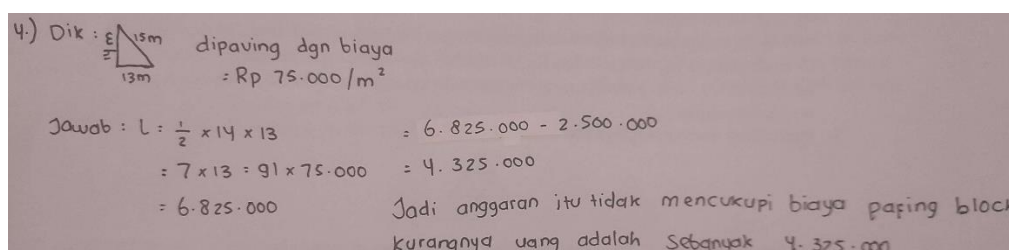 4.) Dik : 15m dipaving dgn biaya
13m = Rp 75.000/m²
Jawab : L = 1/2 × 14 × 13 = 6.825.000 - 2.500.000
= 7 × 13 = 91 × 75.000 = 4.325.000
= 6.825.000 Jadi anggaran itu tidak mencukupi biaya paping block
kurangnya uang adalah sebanyak 4.325.000